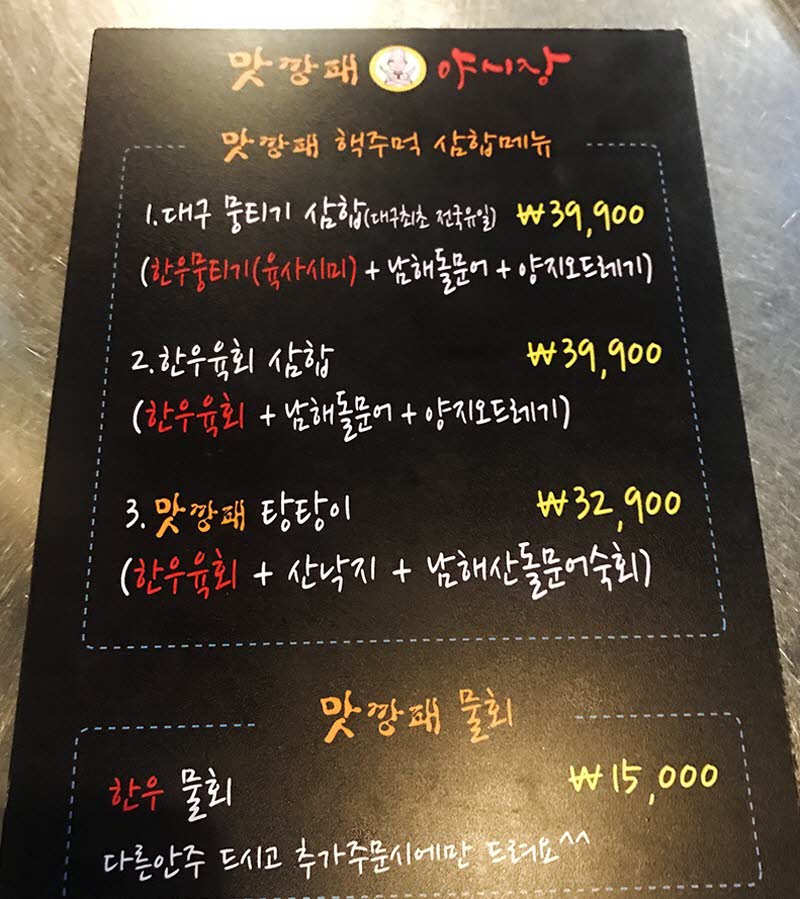 맛깡패 야시장
맛깡패 핵주먹 삼합메뉴
1.대구 뭉티기 삼합(대구최초 전국유일) ₩39,900
(한우뭉티기(육사시미) + 남해돌문어 + 양지오드레기)
2.한우육회 삼합 ₩39,900
(한우육회 + 남해돌문어 + 양지오드레기)
3.맛깡패 탕탕이 ₩32,900
(한우육회 + 산낙지 + 남해산돌문어숙회)
맛깡패 물회
한우 물회 ₩15,000
다른안주 드시고 추가주문시에만 드려요^^